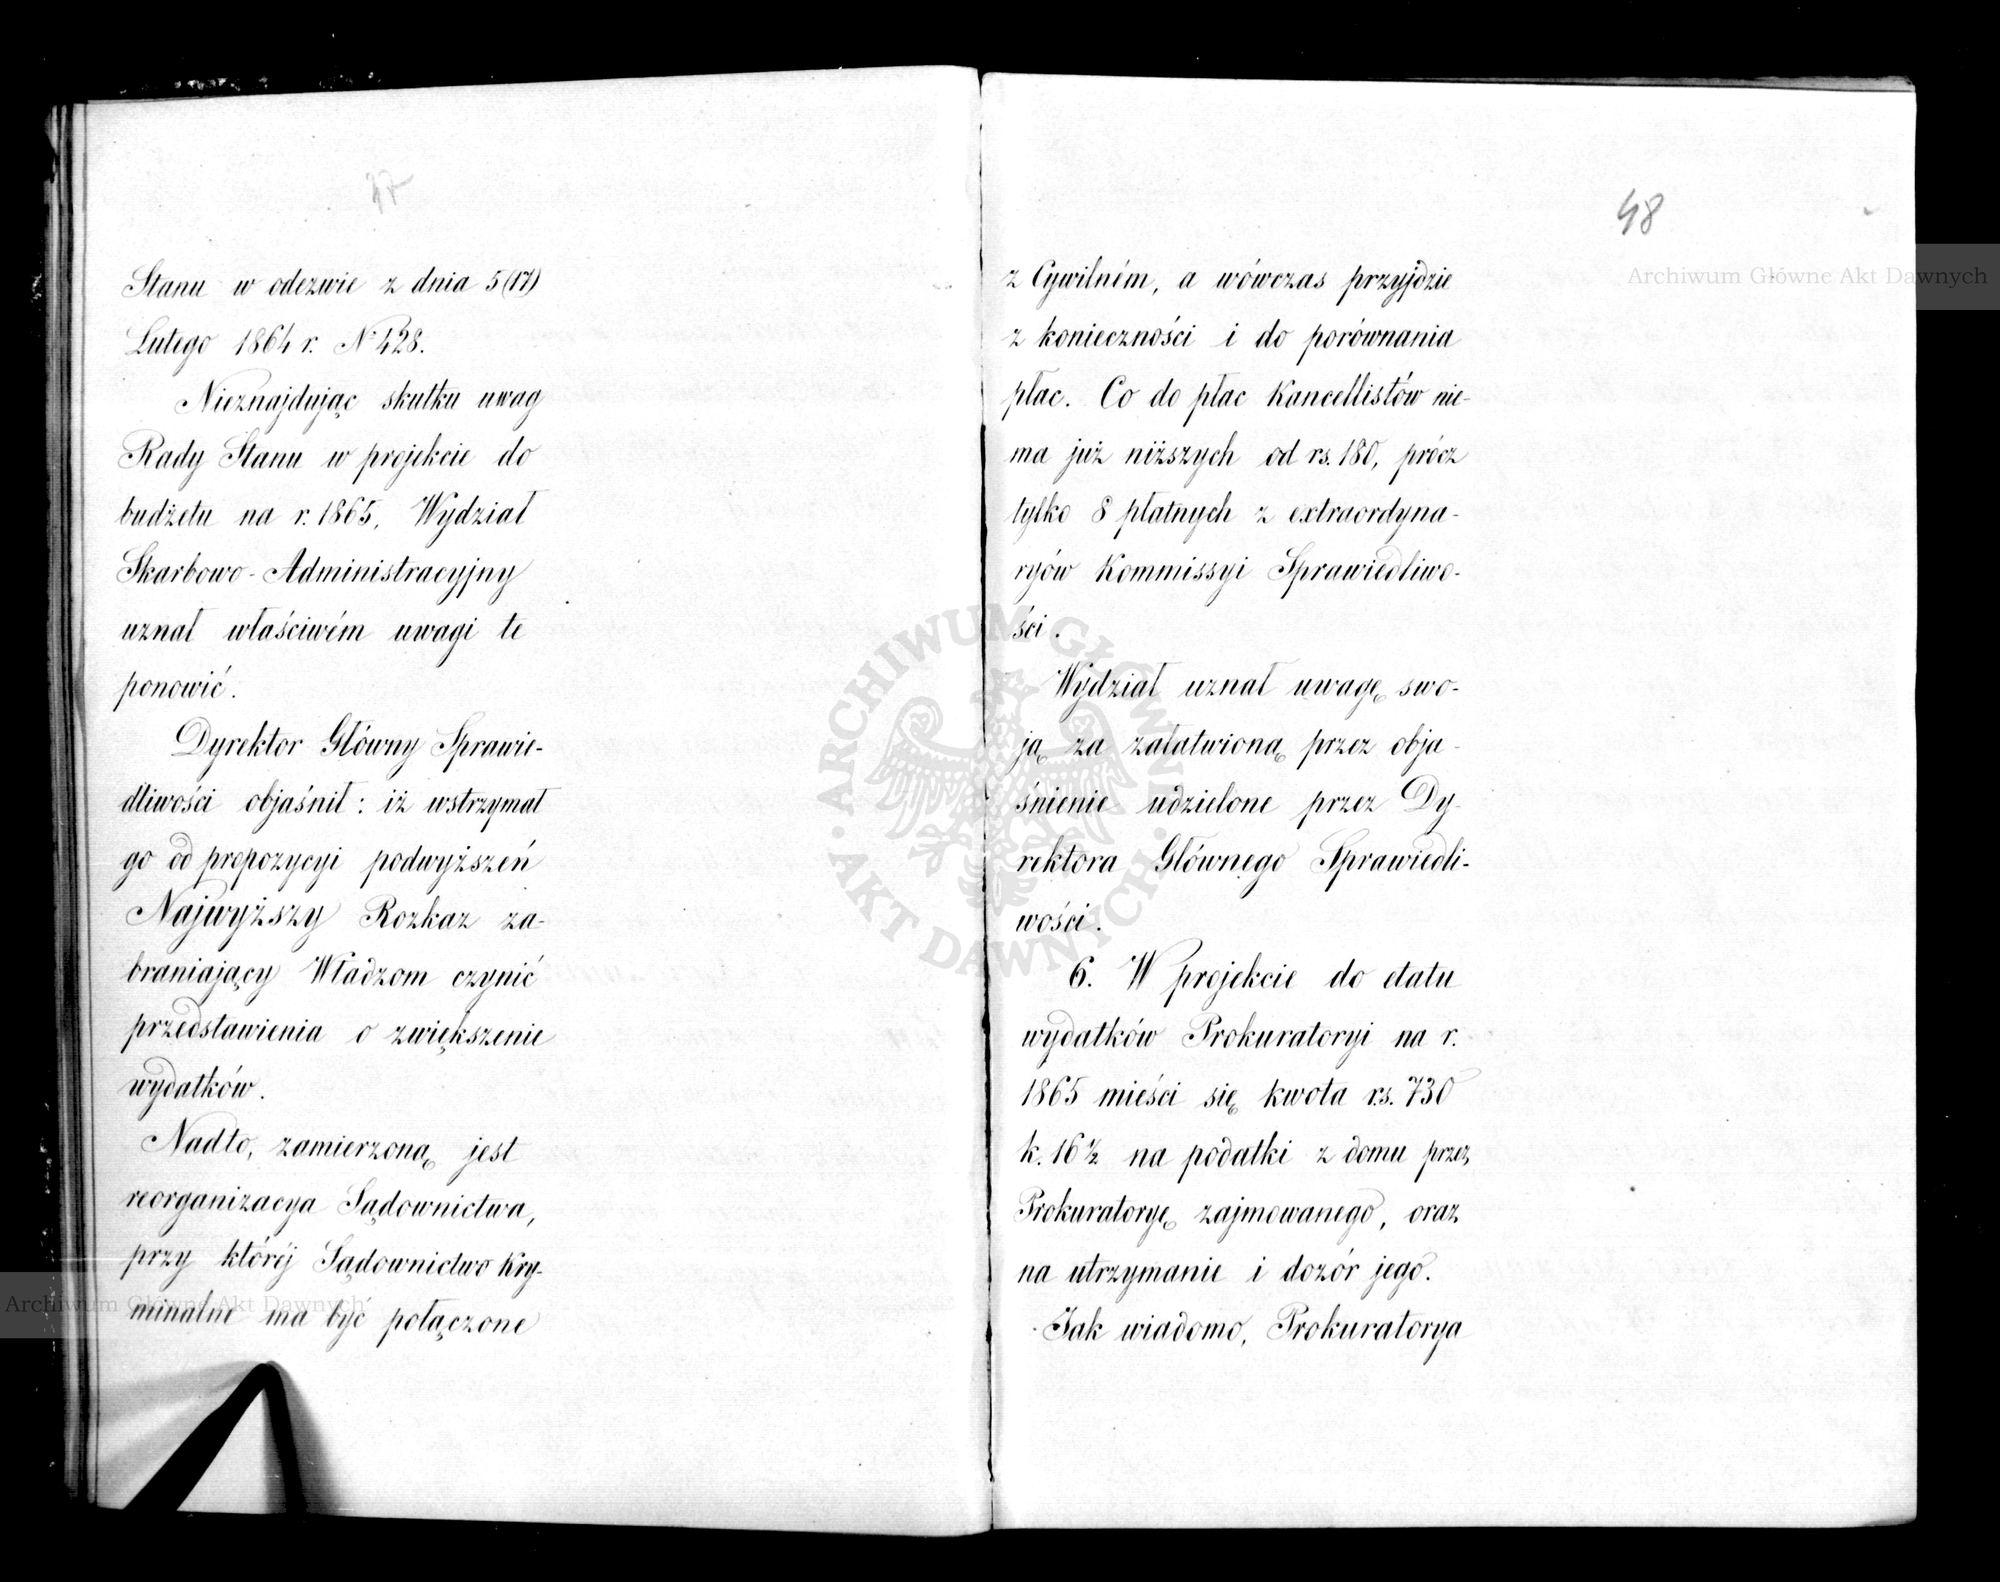 Stanu w odezwie z dnia 5(17)
Lutego 1864 r. N 428.
Nieznajdując skutku uwag
Rady Stanu w projekcie do
budżetu na r. 1865, Wydział
Skarbowo-Administracyjny
uznał właściwém uwagi te
ponowić.
Dyrektor Główny Sprawie-
dliwości objaśnił: iż wstrzymał
go od propozycyi podwyższeń
Najwyższy Rozkaz za-
braniający Władzom czynić
przedstawienia o zwiększenie
wydatków.
Nadto, zamierzoną jest
reorganizacya Sądownictwa,
przy któréj Sądownictwo Kry-
minalne ma być połączone
48
z Cywilném, a wówczas przyjdzie
z konieczności i do porównania
płac. Co do płac Kancellistów nie-
ma już niższych od rs. 180, prócz
tylko 8 płatnych z extraordyna-
ryów Kommissyi Sprawiedliwo-
ści.
Wydział uznał uwagę swo-
ją za załatwioną przez obja-
śnienie udzielone przez Dy-
rektora Głównego Sprawiedli-
wości.
6. W projekcie do etatu
wydatków Prokuratoryi na r.
1865 mieści się kwota rs. 730
k. 16 1/2 na podatki z domu przez
Prokuratoryę zajmowanego, oraz
na utrzymanie i dozór jego.
Jak wiadomo, Prokuratorya
Archiwum Główne Akt Dawnych
Archiwum Główne Akt Dawnych
ARCHIWUM GŁÓWNE · AKT DAWNYCH ·